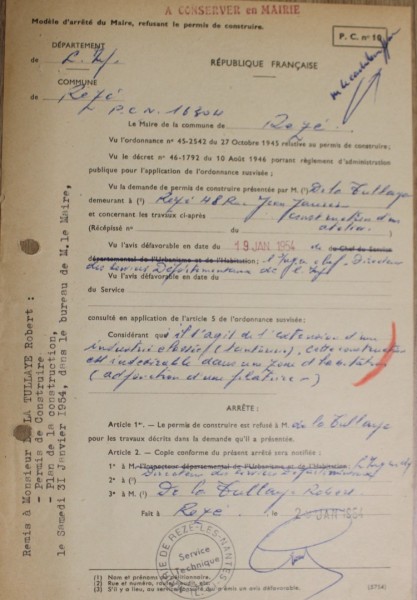 A CONSERVER en MAIRIE
Modèle d'arrêté du Maire, refusant le permis de construire.
P. C. n° 10
DÉPARTEMENT
de L. Inf.
RÉPUBLIQUE FRANÇAISE
COMMUNE
de Rezé
P.C. N. 16304
Le Maire de la commune de Rezé.
Vu l'ordonnance n° 45-2542 du 27 Octobre 1945 relative au permis de construire;
Vu le décret n° 46-1792 du 10 Août 1946 portant règlement d'administration
publique pour l'application de l'ordonnance susvisée;
Vu la demande de permis de construire présentée par M. (1) De la Tullaye
demeurant à (2) Rezé 48 Rue Jean Jaurès
et concernant les travaux ci-après construction d'un
(Récépissé n° atelier.
Vu l'avis défavorable en date du 19 JAN. 1954 de du Chef du Service
départemental de l'Urbanisme et de l'Habitation; Directeur
des Services Départementaux de L. Inf.
Vu l'avis défavorable en date du
du Service
consulté en application de l'article 5 de l'ordonnance susvisée:
Considérant que il s'agit de l'extension d'une
industrie cette construction
est dans une zone d'habitation
(adjonction d'une
ARRÊTE:
Article 1er. - Le permis de construire est refusé à M. de la Tullaye
pour les travaux décrits dans la demande qu'il a présentée.
Article 2. - Copie conforme du présent arrêté sera notifiée:
1° à M. l'Inspecteur départemental de l'Urbanisme et de l'Habitation
2° à M. Directeur des Services Départementaux
3° à M. (1) De la Tullaye Robert
Fait à Rezé, le JAN 1954
MAIRIE DE REZE-LES-NANTES
Service Technique
(1) Nom et prénoms du pétitionnaire.
(2) Rue et numéro,
(3) S'il y a lieu, au service ayant émis un avis défavorable.
(8754)
Remis à Monsieur DE LA TULLAYE Robert :
- Permis de Construire
- Plan de la construction,
le Samedi 31 Janvier 1954, dans le bureau de M. le Maire,